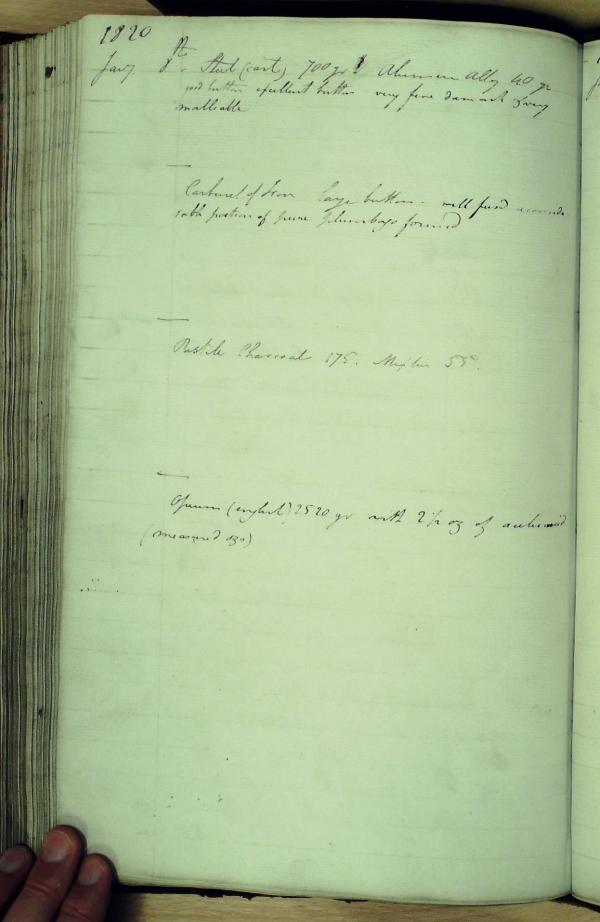 1820
Jany. 8th. Steel (cast) 700 grs Alumine Alloy 40 gr
good button excellent button very fine damask & very
malleable
Carburet of Iron large button - well fused
portion of pure plumbago formed
Pastile Charcoal 175. Mixture 55.
Opium (english) 2520 gr with 2 1/2 oz of acetic acid
(measured ozs)